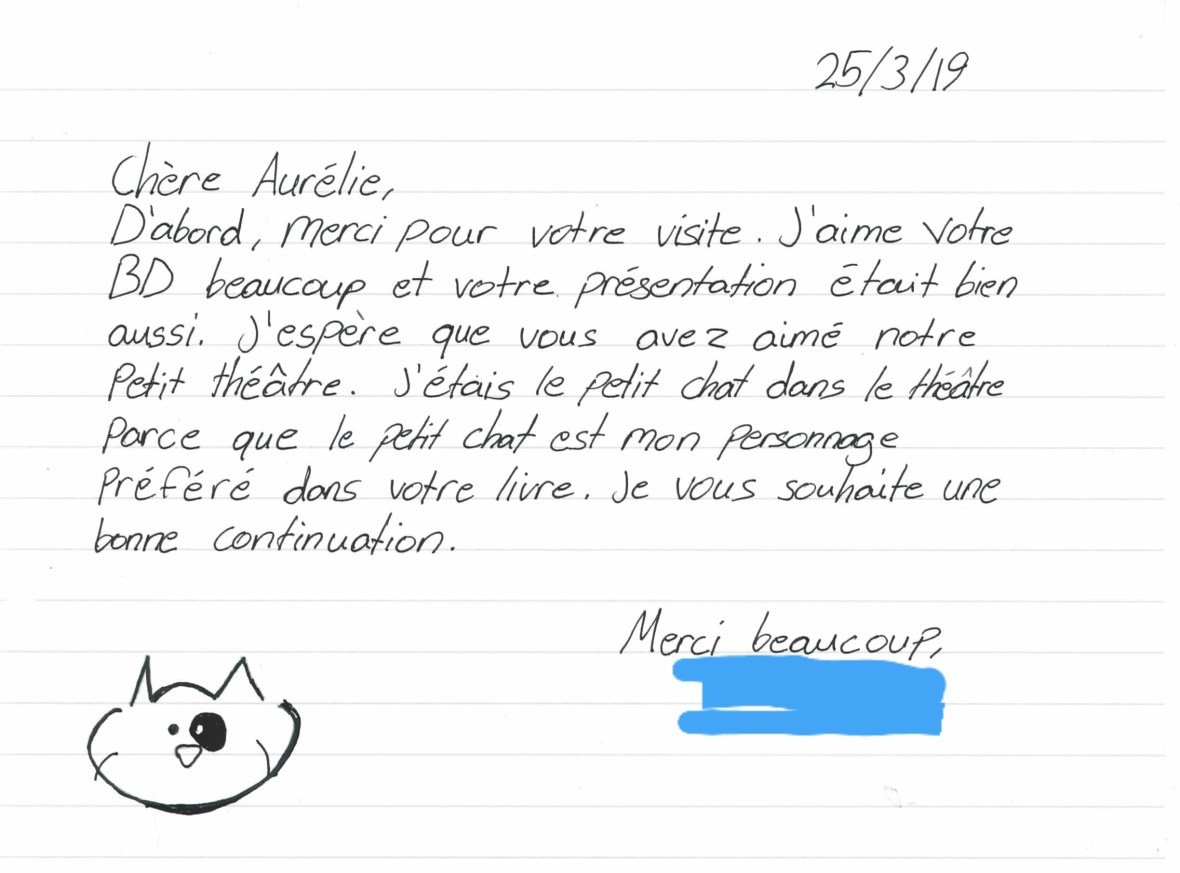 25/3/19
Chère Aurélie,
D'abord, merci pour votre visite. J'aime votre
BD beaucoup et votre présentation était bien
aussi. J'espère que vous avez aimé notre
petit théâtre. J'étais le petit chat dans le théâtre
parce que le petit chat est mon personnage
préféré dans votre livre. Je vous souhaite une
bonne continuation.
Merci beaucoup,